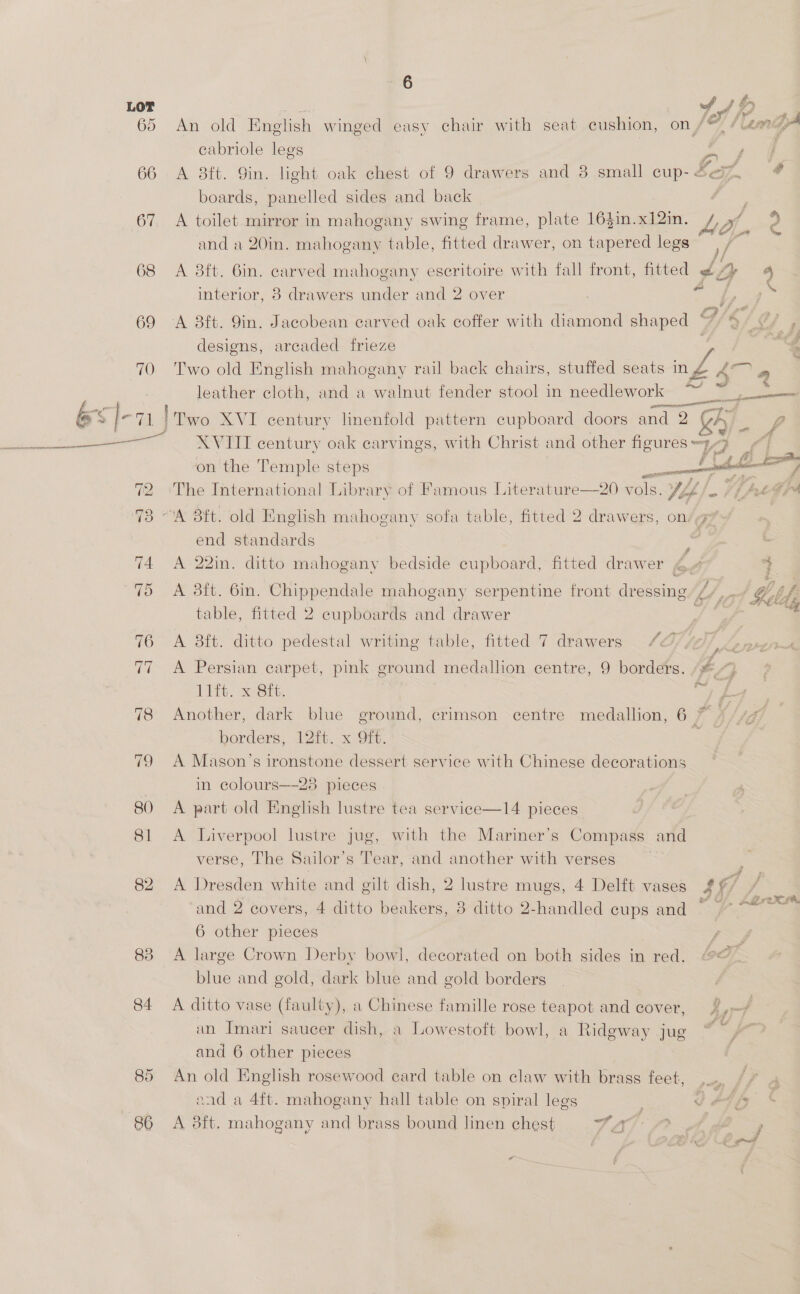 6
LOT
65 An old English winged easy chair with seat cushion, on
cabriole legs
66 A 3ft. 9in. light oak chest of 9 drawers and 3 small cup-
boards, panelled sides and back
67 A toilet mirror in mahogany swing frame, plate 16½in.x12in.
and a 20in. mahogany table, fitted drawer, on tapered legs
68 A 3ft. 6in. carved mahogany escritoire with fall front, fitted
interior, 3 drawers under and 2 over
69 A 3ft. 9in. Jacobean carved oak coffer with diamond shaped
designs, arcaded frieze
70 Two old English mahogany rail back chairs, stuffed seats in
leather cloth, and a walnut fender stool in needlework
71 Two XVI century linenfold pattern cupboard doors and 2
XVIII century oak carvings, with Christ and other figures
on the Temple steps
72 The International Library of Famous Literature—20 vols.
73 A 3ft. old English mahogany sofa table, fitted 2 drawers, on
end standards
74 A 22in. ditto mahogany bedside cupboard, fitted drawer
75 A 3ft. 6in. Chippendale mahogany serpentine front dressing
table, fitted 2 cupboards and drawer
76 A 3ft. ditto pedestal writing table, fitted 7 drawers
77 A Persian carpet, pink ground medallion centre, 9 borders.
11ft. x 8ft.
78 Another, dark blue ground, crimson centre medallion, 6
borders, 12ft. x 9ft.
79 A Mason's ironstone dessert service with Chinese decorations
in colours—23 pieces
80 A part old English lustre tea service—14 pieces
81 A Liverpool lustre jug, with the Mariner's Compass and
verse, The Sailor's Tear, and another with verses
82 A Dresden white and gilt dish, 2 lustre mugs, 4 Delft vases
and 2 covers, 4 ditto beakers, 3 ditto 2-handled cups and
6 other pieces
83 A large Crown Derby bowl, decorated on both sides in red.
blue and gold, dark blue and gold borders
84 A ditto vase (faulty), a Chinese famille rose teapot and cover,
an Imari saucer dish, a Lowestoft bowl, a Ridgway jug
and 6 other pieces
85 An old English rosewood card table on claw with brass feet,
and a 4ft. mahogany hall table on spiral legs
86 A 3ft. mahogany and brass bound linen chest